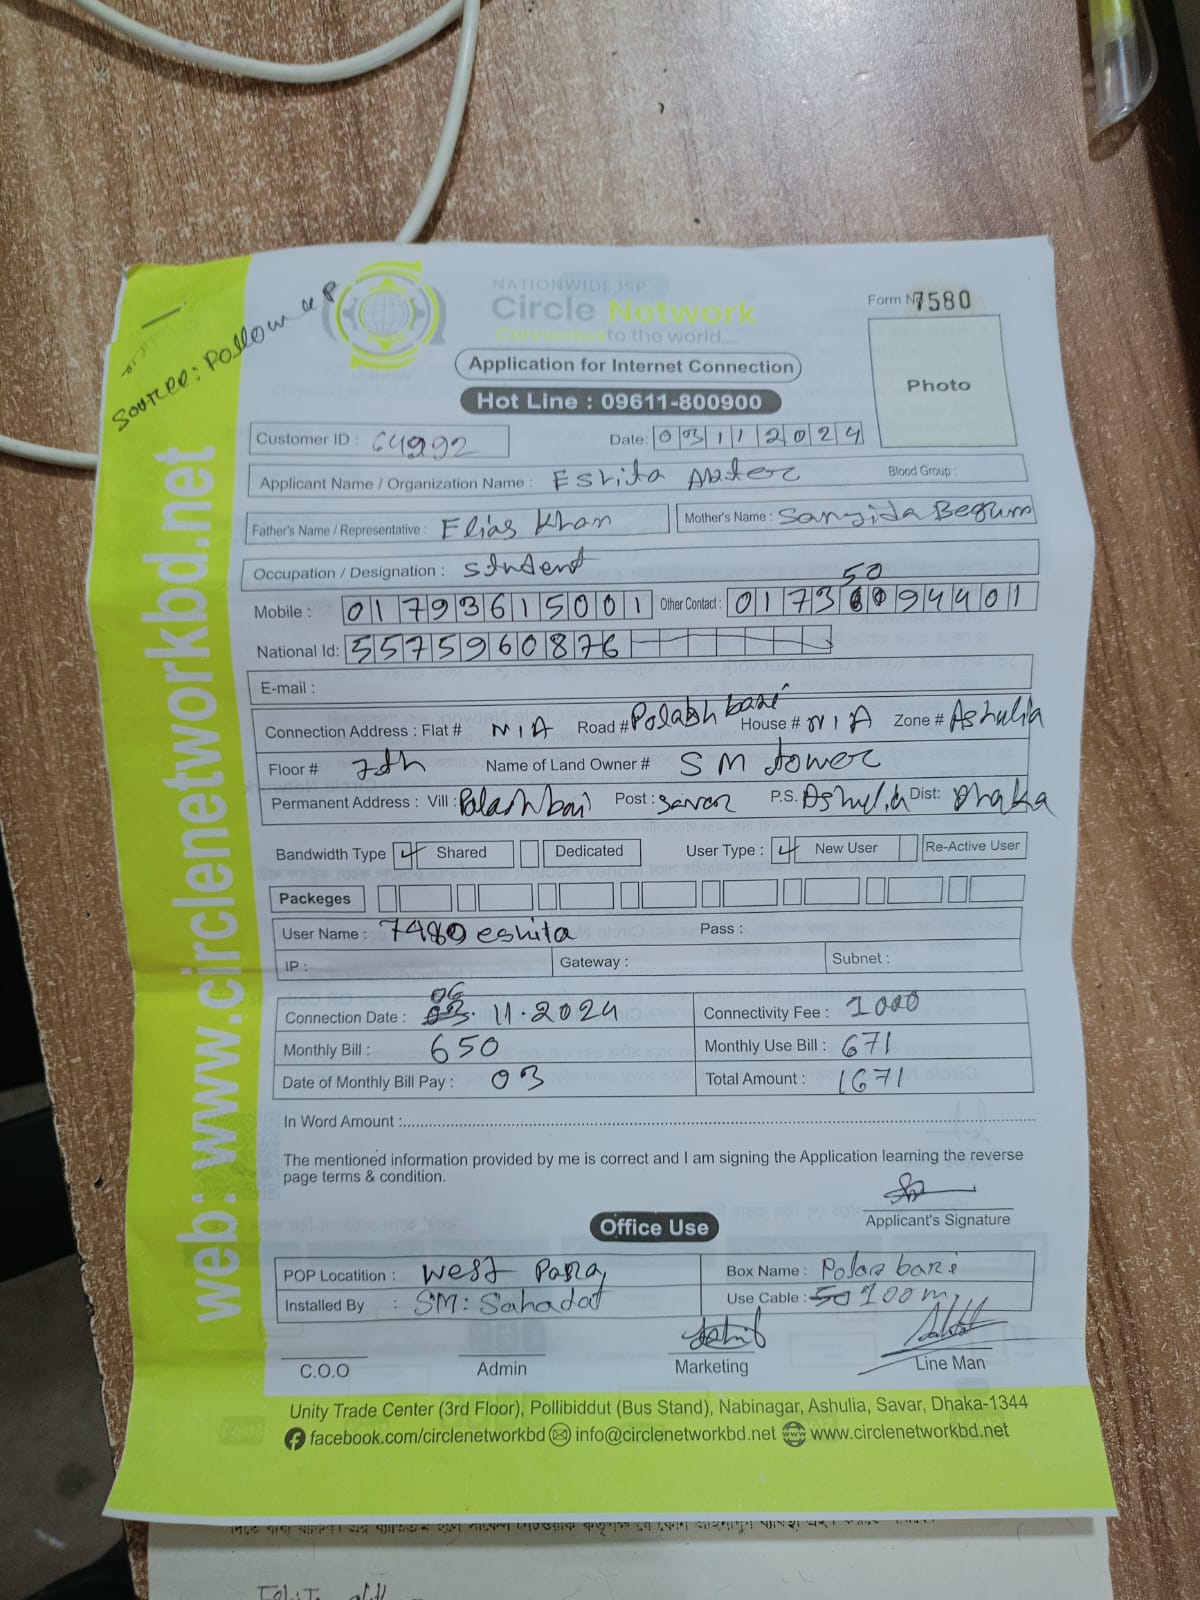 Source: Follow up
NATIONWIDE ISP
Circle Network
Connected to the world.....
Application for Internet Connection
Hot Line : 09611-800900
Form N 7580
Photo
web: www.circlenetworkbd.net
Customer ID : 64992
Date: 03112024
Applicant Name / Organization Name : Eshita Akter
Blood Group :
Father's Name / Representative : Elias Khan
Mother's Name : Sanjida Begum
Occupation / Designation : Student
50
Mobile : 01793615001 Other Contact : 01736094401
National Id: 5575960876
E-mail :
Connection Address : Flat # N/A Road # Polash bari House # N/A Zone # Ashulia
Floor # 7th Name of Land Owner # SM tower
Permanent Address : Vill : Palash bari Post : Savar P.S. Ashulia Dist: Dhaka
Bandwidth Type Shared Dedicated User Type : New User Re-Active User
Packeges
User Name : 7480eshita Pass :
IP : Gateway : Subnet :
06
Connection Date : 03.11.2024 Connectivity Fee : 1000
Monthly Bill : 650 Monthly Use Bill : 671
Date of Monthly Bill Pay : 03 Total Amount : 1671
In Word Amount :
The mentioned information provided by me is correct and I am signing the Application learning the reverse
page terms & condition.
Applicant's Signature
Office Use
POP Locatition : West Para Box Name : Polas bari
Installed By : SM: Sahadat Use Cable : 50 100m
C.O.O Admin Marketing Line Man
Unity Trade Center (3rd Floor), Pollibiddut (Bus Stand), Nabinagar, Ashulia, Savar, Dhaka-1344
facebook.com/circlenetworkbd info@circlenetworkbd.net www.circlenetworkbd.net